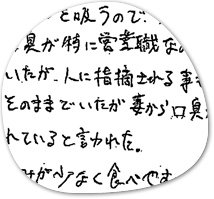 と吸うので、
臭が特に営業職な
いたが、人に指摘される事も
そのままでいたが妻から口臭
れていると言われた。
が少なく食べやす